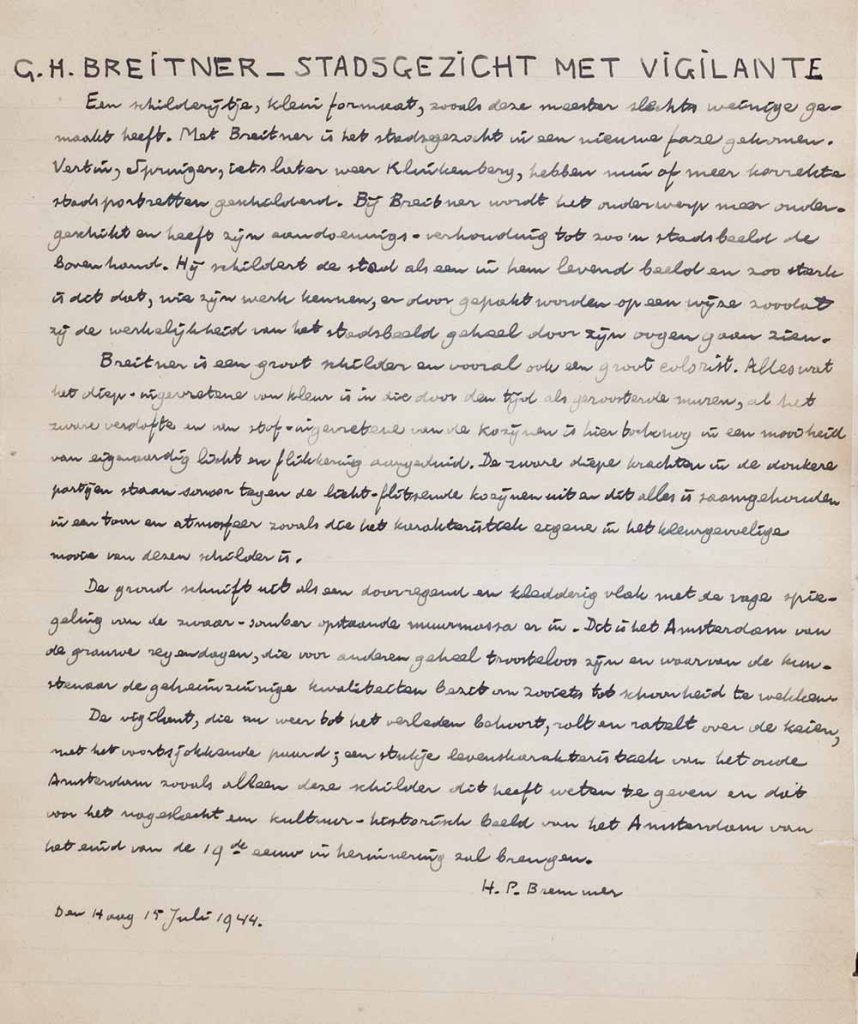 G. H. BREITNER – STADSGEZICHT MET VIGILANTE
Een schilderijtje, klein formaat, zooals deze meester slechts weinige ge-
maakt heeft. Met Breitner is het stadsgezicht in een nieuwe faze gekomen.
Vertin, Springer, iets later weer Klinkenberg, hebben min of meer korrekte
stadsportretten geschilderd. Bij Breitner wordt het onderwerp meer onder-
geschikt en heeft zijn aandoenings-verhouding tot zoo'n stadsbeeld de
bovenhand. Hij schildert de stad als een in hem levend beeld en zoo sterk
is dit dat, wie zijn werk kennen, er door gepakt worden op een wijze zoodat
zij de werkelijkheid van het stadsbeeld geheel door zijn oogen gaan zien.
Breitner is een groot schilder en vooral ook een groot colorist. Alles wat
het diep-ingevretene van kleur is in die door den tijd als geroosterde muren, al het
zware verdofte en van stof-ingevretene van de kozijnen is hier toch nog in een mooiheid
van eigenaardig licht en flikkering aangeduid. De zware diepe krachten in de donkere
partijen staan sonoor tegen de licht-flitsende kozijnen uit en dit alles is saamgehouden
in een toon en atmosfeer zooals die het karakteristiek eigene in het kleurgevoelige
mooie van dezen schilder is.
De grond schuift uit als een doorregend en kledderig vlak met de vage spie-
geling van de zwaar-somber opstaande muurmassa er in. Dit is het Amsterdam van
de grauwe regendagen, die voor anderen geheel troosteloos zijn en waarvan de kun-
stenaar de geheimzinnige kwaliteiten bezit om zooiets tot schoonheid te wekken.
De vigilant, die nu weer tot het verleden behoort, rolt en ratelt over de keien,
met het voortsjokkende paard; een stukje levenskarakteristiek van het oude
Amsterdam zooals alleen deze schilder dit heeft weten te geven en dat
voor het nageslacht een kultuur-historisch beeld van het Amsterdam van
het eind van de 19de eeuw in herinnering zal brengen.
H. P. Bremmer
Den Haag 15 Juli 1944.